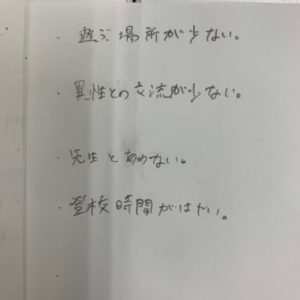 ・遊ぶ場所が少ない。
・異性との交流が少ない。
・先生とあわない。
・登校時間がはやい。